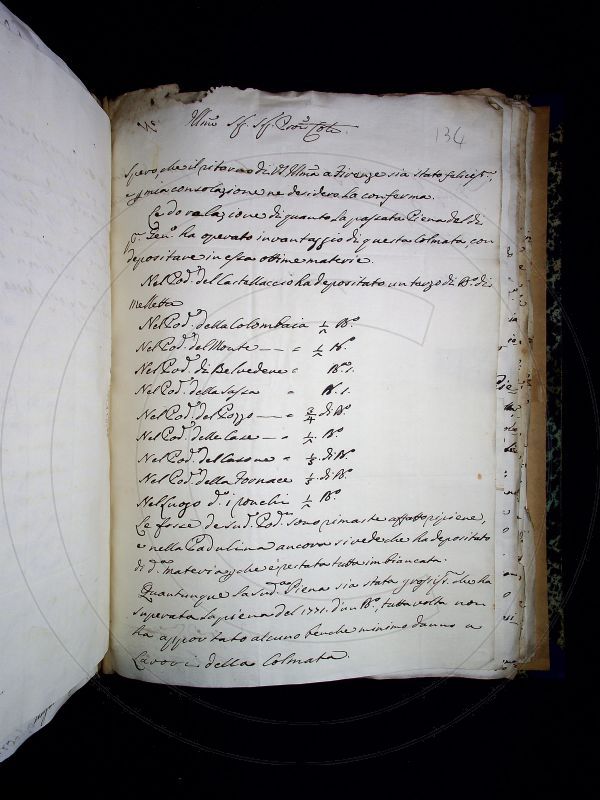 134
Illmo Sig. Sig. Prone Colo.
Spero, che il ritorno di VS Illma a Firenze sia stato felicissmo,
e p mia consolazione ne desidero la conferma.
Le do relazione di quanto la passata Piena del di
po. Genno. ha operato in vantaggio di questa Colmata con
depositare in essa ottime materie.
Nel Pode. del Castellaccio ha depositato un terzo di Bo. di
melletta
Nel Pode. della Colombaia 1/2 Bo.
Nel Pode. del Monte — " 1/2 Bo.
Nel Pode. di Belvedere " Bo. 1.
Nel Pode. della " Bo. 1.
Nel Pode. del Pozzo — " 3/4 di Bo.
Nel Pode. delle Case — " 1/2. Bo.
Nel Pode. del Casone — " 1/3. di Bo.
Nel Pode. della Fornace 1/3. di Bo.
Nel luogo do. i ronchi 1/2 Bo.
Le fosse de sudi. Podi. sono rimaste affatto ripiene,
e nella Padulina ancora si vede che ha depositato
di da. materia p che è restata tutta imbiancata.
Quantunque la suda. Piena sia stata grossissa. che ha
superata la piena del 1771. d'un Bo., tutta volta non
ha apportato alcuno benche minimo danno a
Lavori della Colmata.